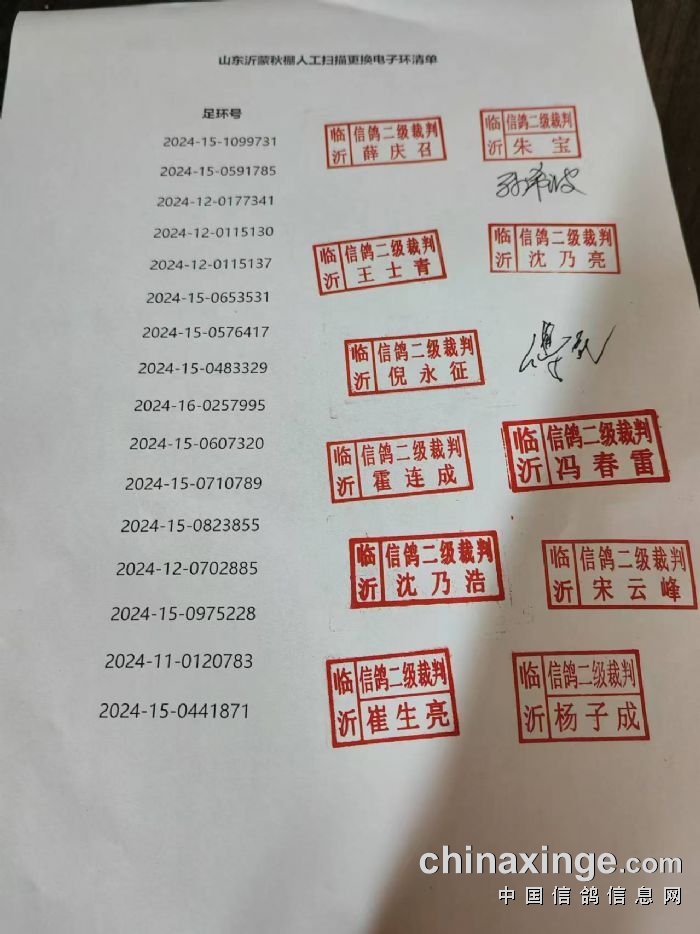 山东沂蒙秋棚人工扫描更换电子环清单
足环号
2024-15-1099731
2024-15-0591785
2024-12-0177341
2024-12-0115130
2024-12-0115137
2024-15-0653531
2024-15-0576417
2024-15-0483329
2024-16-0257995
2024-15-0607320
2024-15-0710789
2024-15-0823855
2024-12-0702885
2024-15-0975228
2024-11-0120783
2024-15-0441871
临沂 信鸽二级裁判
薛庆召
临沂 信鸽二级裁判
朱宝
临沂 信鸽二级裁判
王士青
临沂 信鸽二级裁判
沈乃亮
临沂 信鸽二级裁判
倪永征
临沂 信鸽二级裁判
霍连成
临沂 信鸽二级裁判
冯春雷
临沂 信鸽二级裁判
沈乃浩
临沂 信鸽二级裁判
宋云峰
临沂 信鸽二级裁判
崔生亮
临沂 信鸽二级裁判
杨子成
chinaxinge.com
中国信鸽信息网